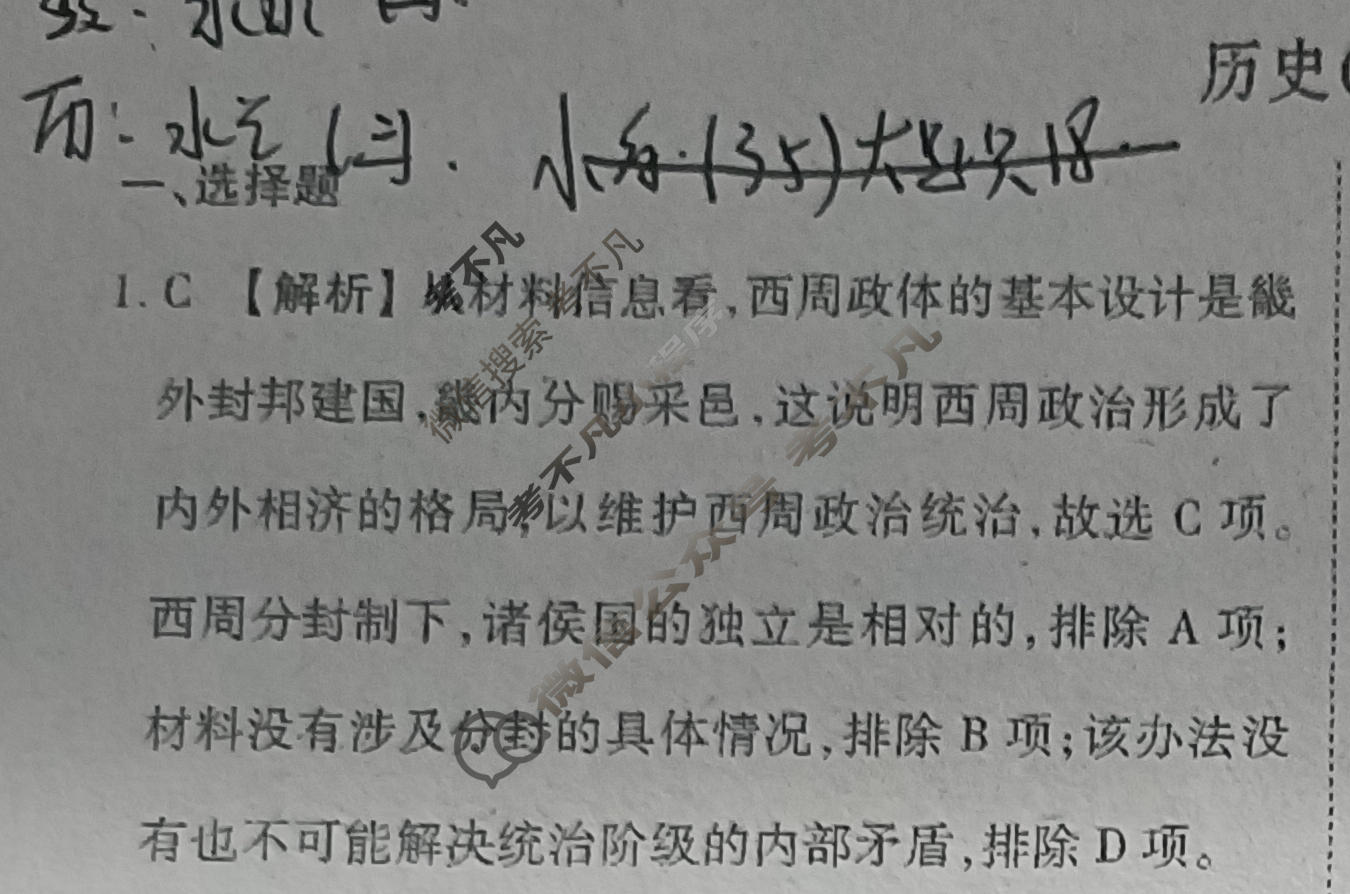 历史(
一、选择题
1. C 【解析】从材料信息看,西周政体的基本设计是畿
外封邦建国,畿内分赐采邑,这说明西周政治形成了
内外相济的格局,以维护西周政治统治,故选 C 项。
西周分封制下,诸侯国的独立是相对的,排除 A 项;
材料没有涉及分封的具体情况,排除 B 项;该办法没
有也不可能解决统治阶级的内部矛盾,排除 D 项。
微信搜索 考不凡 小程序
微信公众号 考不凡